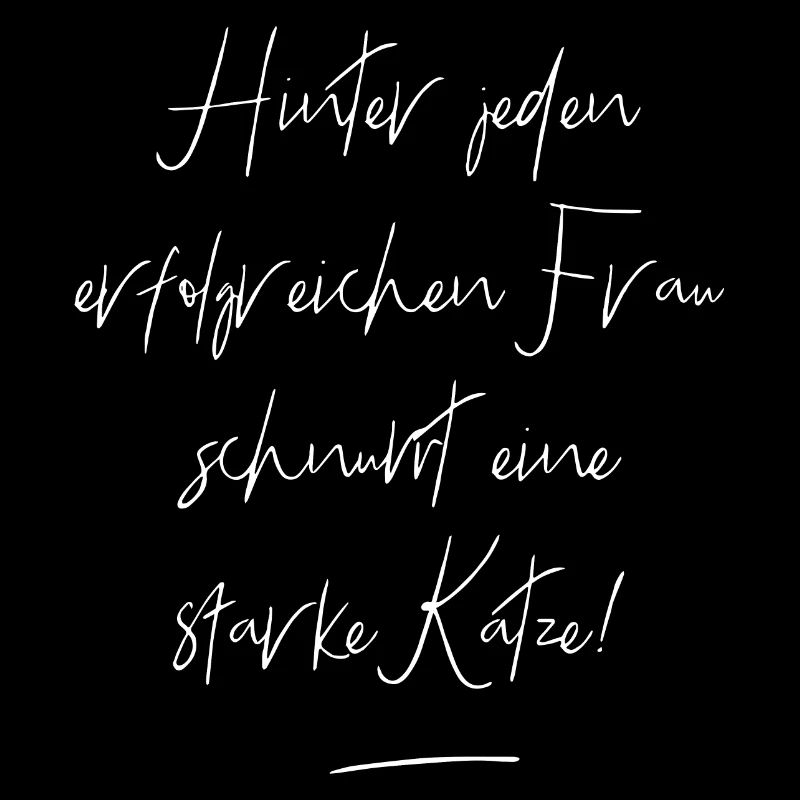 Hinter jeden
erfolgreichen Frau
schnurrt eine
starke Katze!